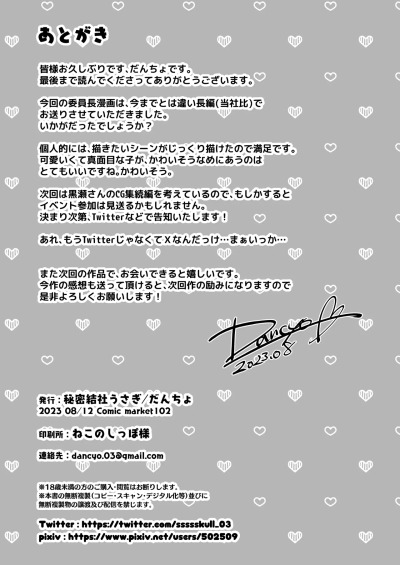 あとがき
皆様お久しぶりです、だんちょです。
最後まで読んでくださってありがとうございます。
今回の委員長漫画は、今までとは違い長編(当社比)で
お送りさせていただきました。
いかがだったでしょうか？
個人的には、描きたいシーンがじっくり描けたので満足です。
可愛いくて真面目な子が、かわいそうなめにあうのは
とてもいいですね。かわいそう。
次回は黒瀬さんのCG集続編を考えているので、もしかすると
イベント参加は見送るかもしれません。
決まり次第、Twitterなどで告知いたします！
あれ、もうTwitterじゃなくてXなんだっけ…まぁいっか…
また次回の作品で、お会いできると嬉しいです。
今作の感想も送って頂けると、次回作の励みになりますので
是非よろしくお願いします！
Dancyo
2023.08
発行：秘密結社うさぎ/だんちょ
2023 08/12 Comic market102
印刷所：ねこのしっぽ様
連絡先：dancyo.03@gmail.com
※18歳未満の方のご購入・閲覧はお断りします。
※本書の無断複製(コピー・スキャン・デジタル化等)並びに
無断複製物の譲渡及び配信を禁じます。
Twitter : https://twitter.com/sssskull_03
pixiv : https://www.pixiv.net/users/502509